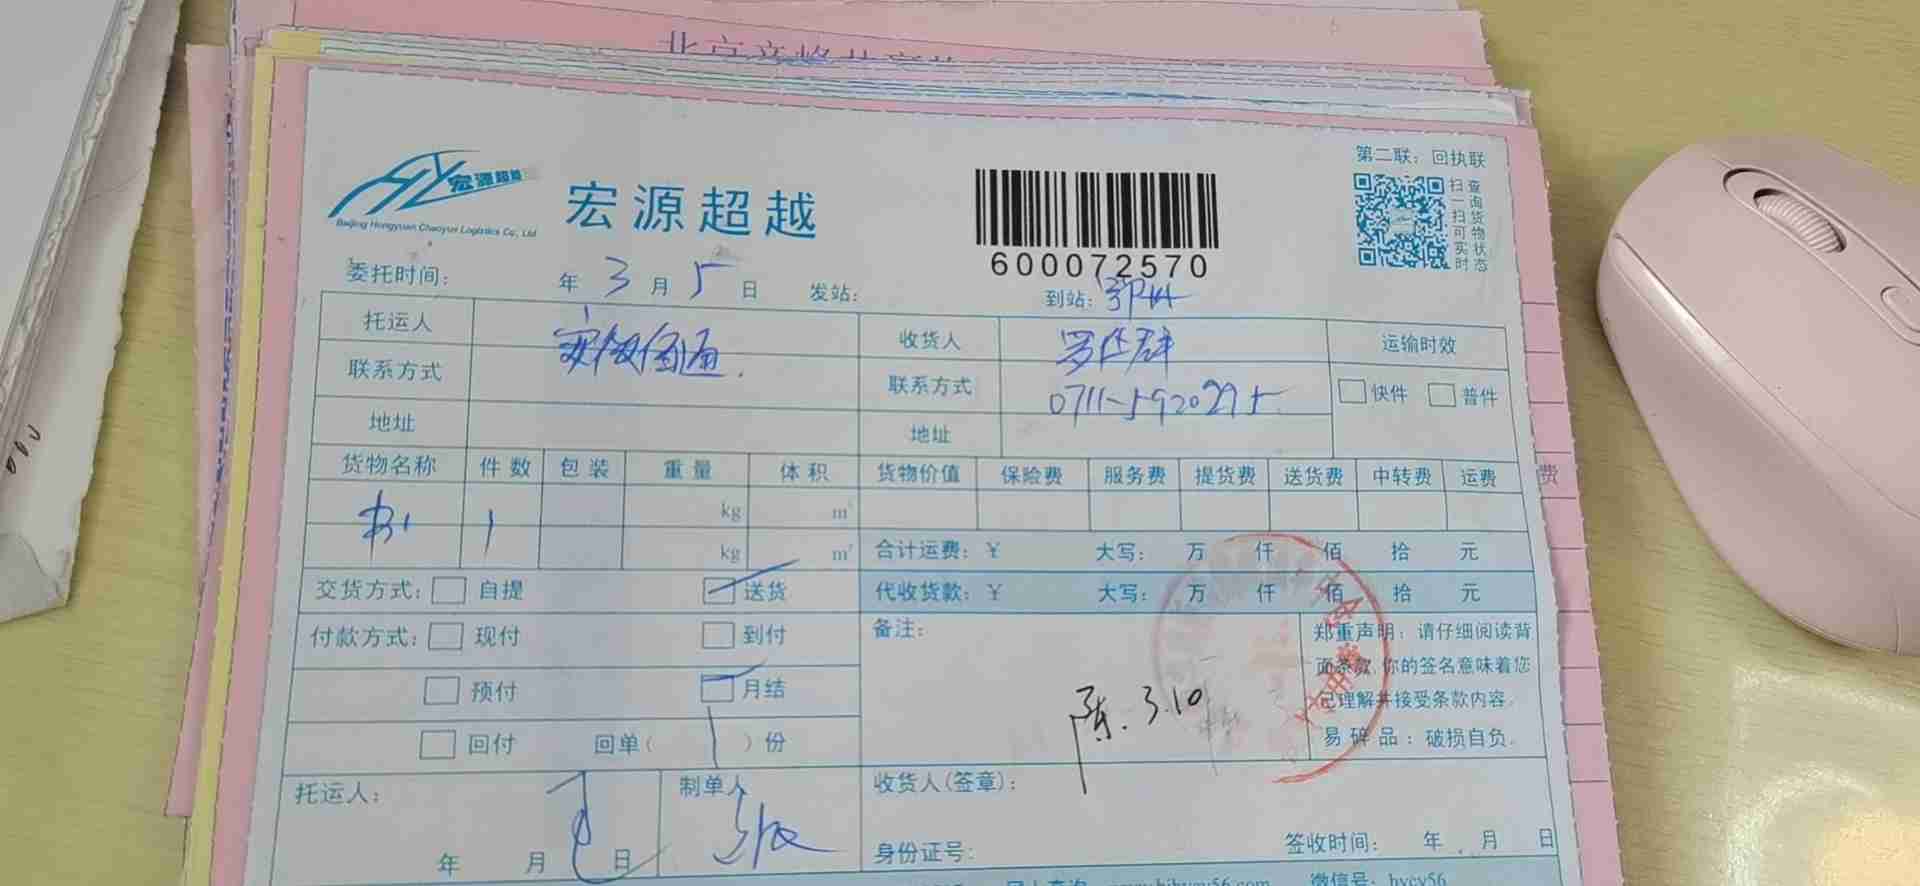 第二联：回执联
宏源超越
Beijing Hongyuan Chaoyue Logistics Co., Ltd
宏源超越
600072570
扫一扫可实时
查询货物状态
委托时间： 年 3 月 5 日 发站： 到站：鄂州
托运人 收货人 运输时效
联系方式 联系方式 0711-5920295 快件 普件
地址 地址
货物名称 件数 包装 重量 体积 货物价值 保险费 服务费 提货费 送货费 中转费 运费 费
书 1 kg m³
kg m³ 合计运费：¥ 大写： 万 仟 佰 拾 元
交货方式： 自提 送货 代收货款：¥ 大写： 万 仟 佰 拾 元
付款方式： 现付 到付 备注：
预付 月结
回付 回单（ 1 ）份
陈. 3.10
郑重声明：请仔细阅读背
面条款,你的签名意味着您
已理解并接受条款内容.
易碎品：破损自负.
托运人： 制单人 收货人(签章)：
年 月 日 身份证号： 签收时间： 年 月 日
微信号：hycy56